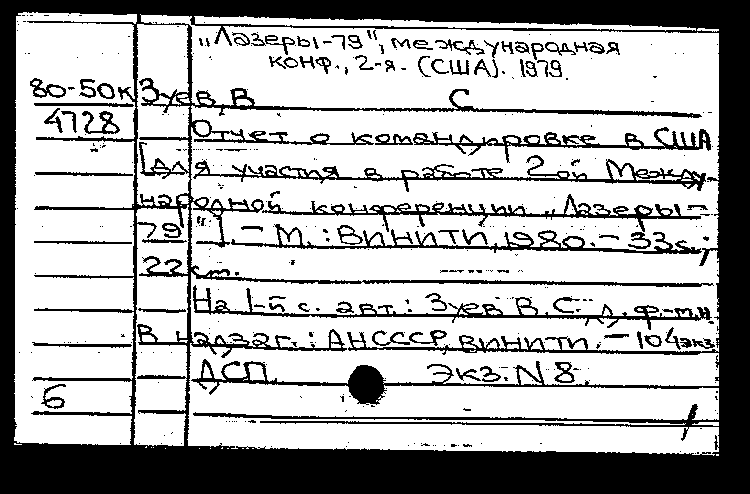 „Лазеры-79", международная
конф., 2-я. (США). 1979.
80-50к Зуев, В С
4728 Отчет о командировке в США
[для участия в работе 2ой Между-
народной конференции „Лазеры-
79"]. – М.: ВИНИТИ, 1980. – 33с.;
22 см.
На 1-й с. авт.: Зуев В.С. д. ф-м.н.
В надзаг.: АНСССР, ВИНИТИ. – 104экз.
ДСП. Экз. N 8.
6